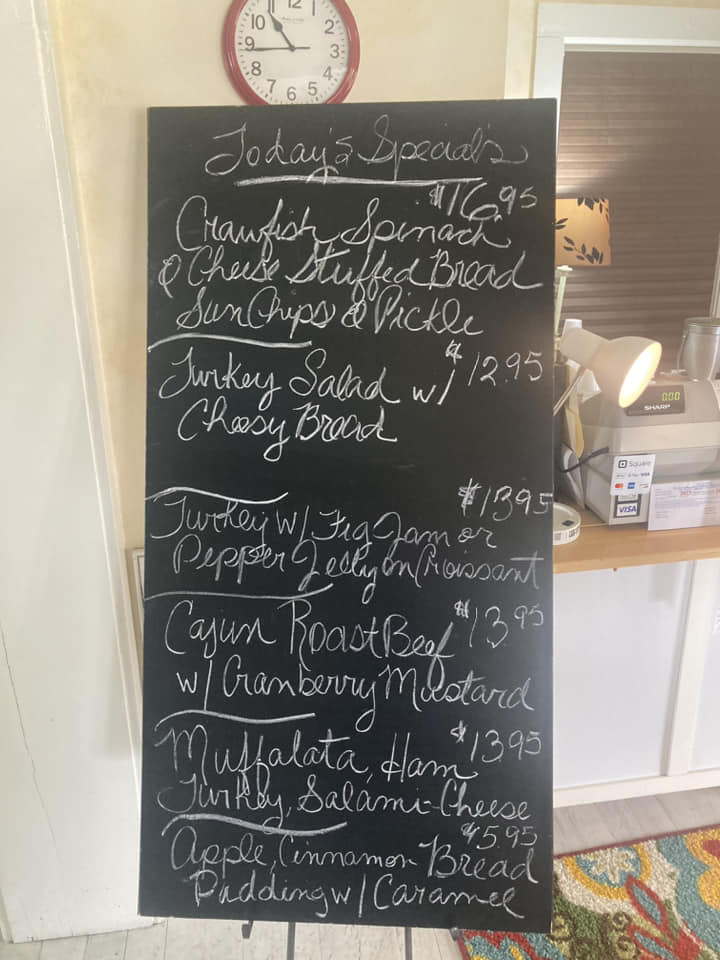 12
11
10
9
8
7
6
5
4
3
2
Today's Special's
$16.95
Crawfish Spinach
& Cheese Stuffed Bread
SunChips & Pickle
$12.95
Turkey Salad w/
Cheesy Bread
$13.95
Turkey w/ Fig Jam or
Pepper Jelly on Croissant
Cajun Roast Beef $13.95
w/ Cranberry Mustard
Muffalata, Ham $13.95
Turkey, Salami-Cheese
$5.95
Apple, Cinnamon Bread
Pudding w/ Caramel
0.00
SHARP
Square
VISA